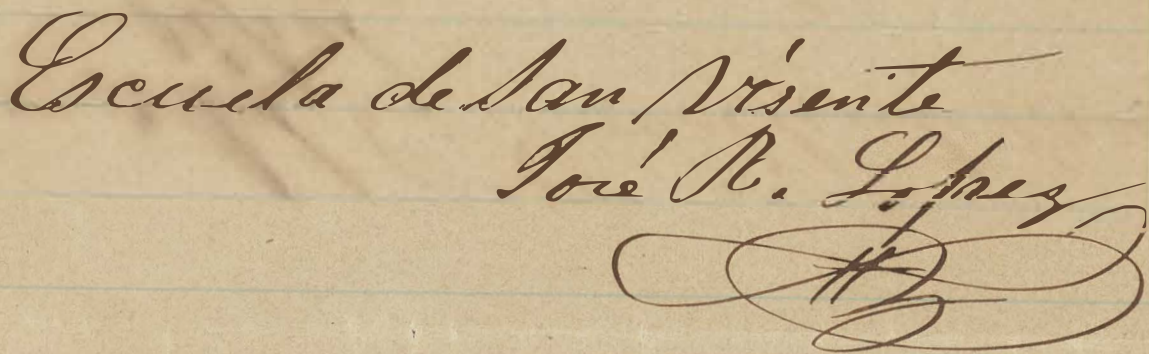 Escuela de San Visente
José R. Lopez